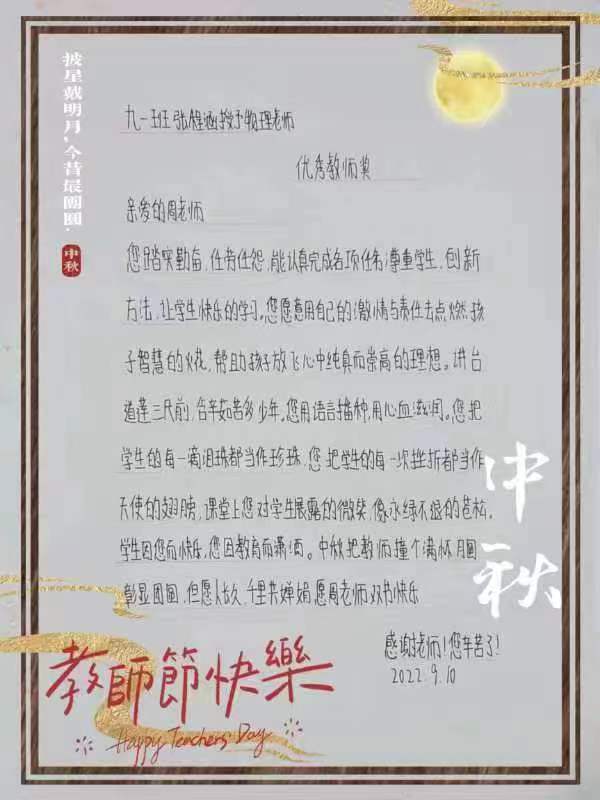 披星戴明月，今昔最團圓·
中秋
九一班 张 涵授予物理老师
优秀教师奖
亲爱的周老师
您踏实勤奋，任劳任怨，能认真完成各项任务，尊重学生，创新
方法，让学生快乐的学习，您愿意用自己的激情与责任去点燃孩
子智慧的火花，帮助孩子放飞心中纯真而崇高的理想。讲台
道莲三尺前，含辛茹苦多少年，您用语言播种，用心血滋润。您把
学生的每一滴泪珠都当作珍珠，您把学生的每一次挫折都当作
天使的翅膀，课堂上您对学生展露的微笑，像永绿不退的苍松，
学生因您而快乐，您因教育而潇洒。中秋把教师撞个满怀，月圆
彰显团圆，但愿人长久，千里共婵娟，愿周老师双节快乐
感谢老师！您辛苦了！
2022.9.10
中秋
教師節快樂
Happy Teachers' Day